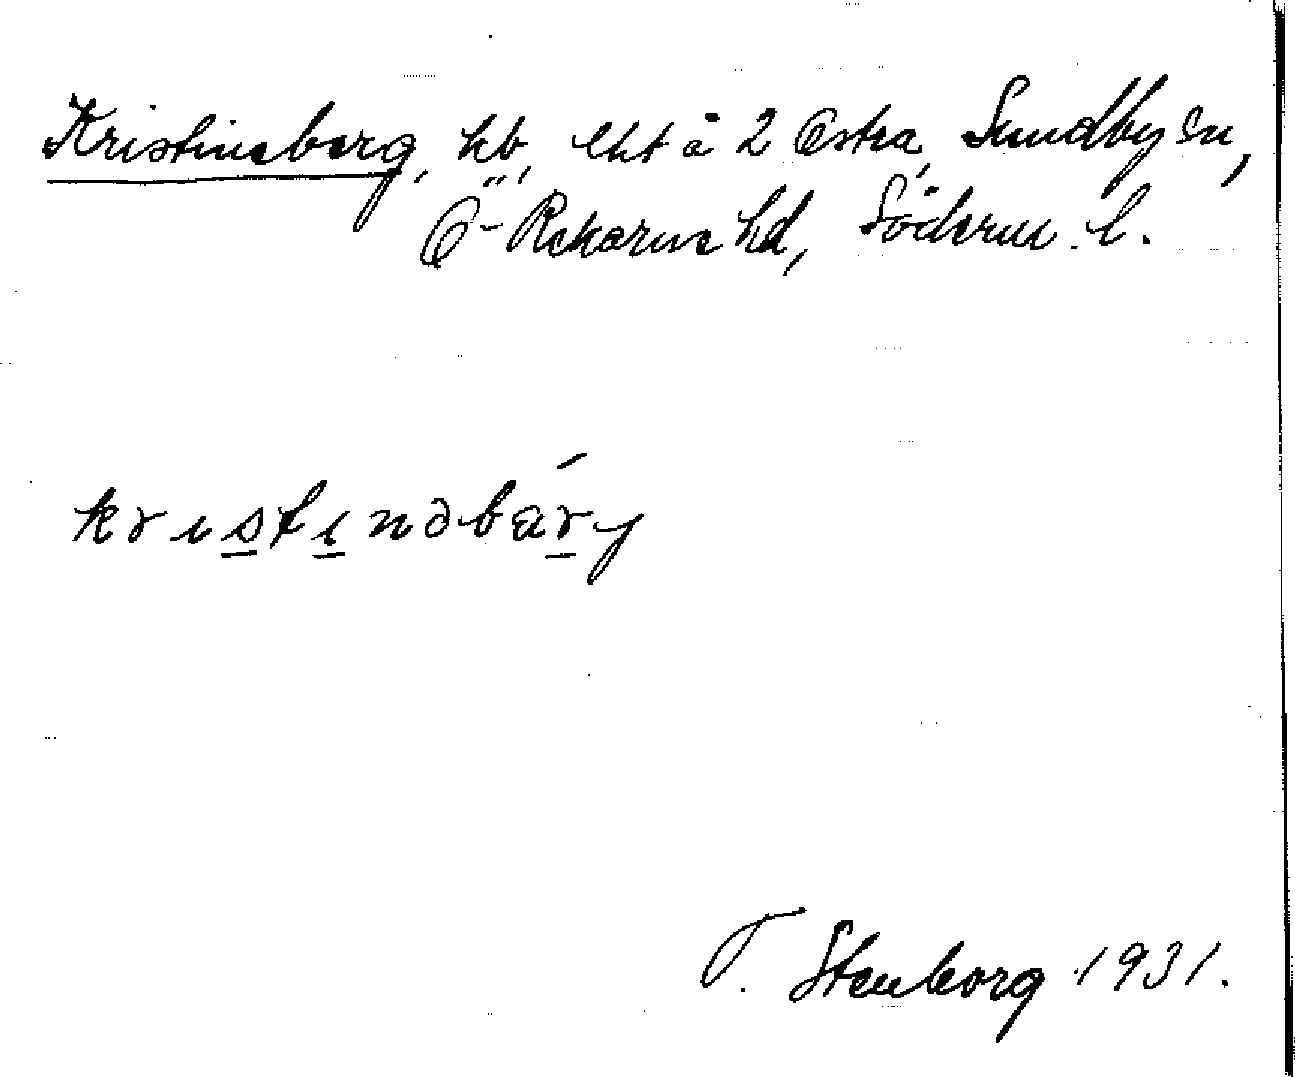 Kristineberg, hb, lht å 2 Östra, Sundby sn,
Ö-Rekarne hd, Söderm. l.
kristinəbàrj
T. Stenborg 1931.